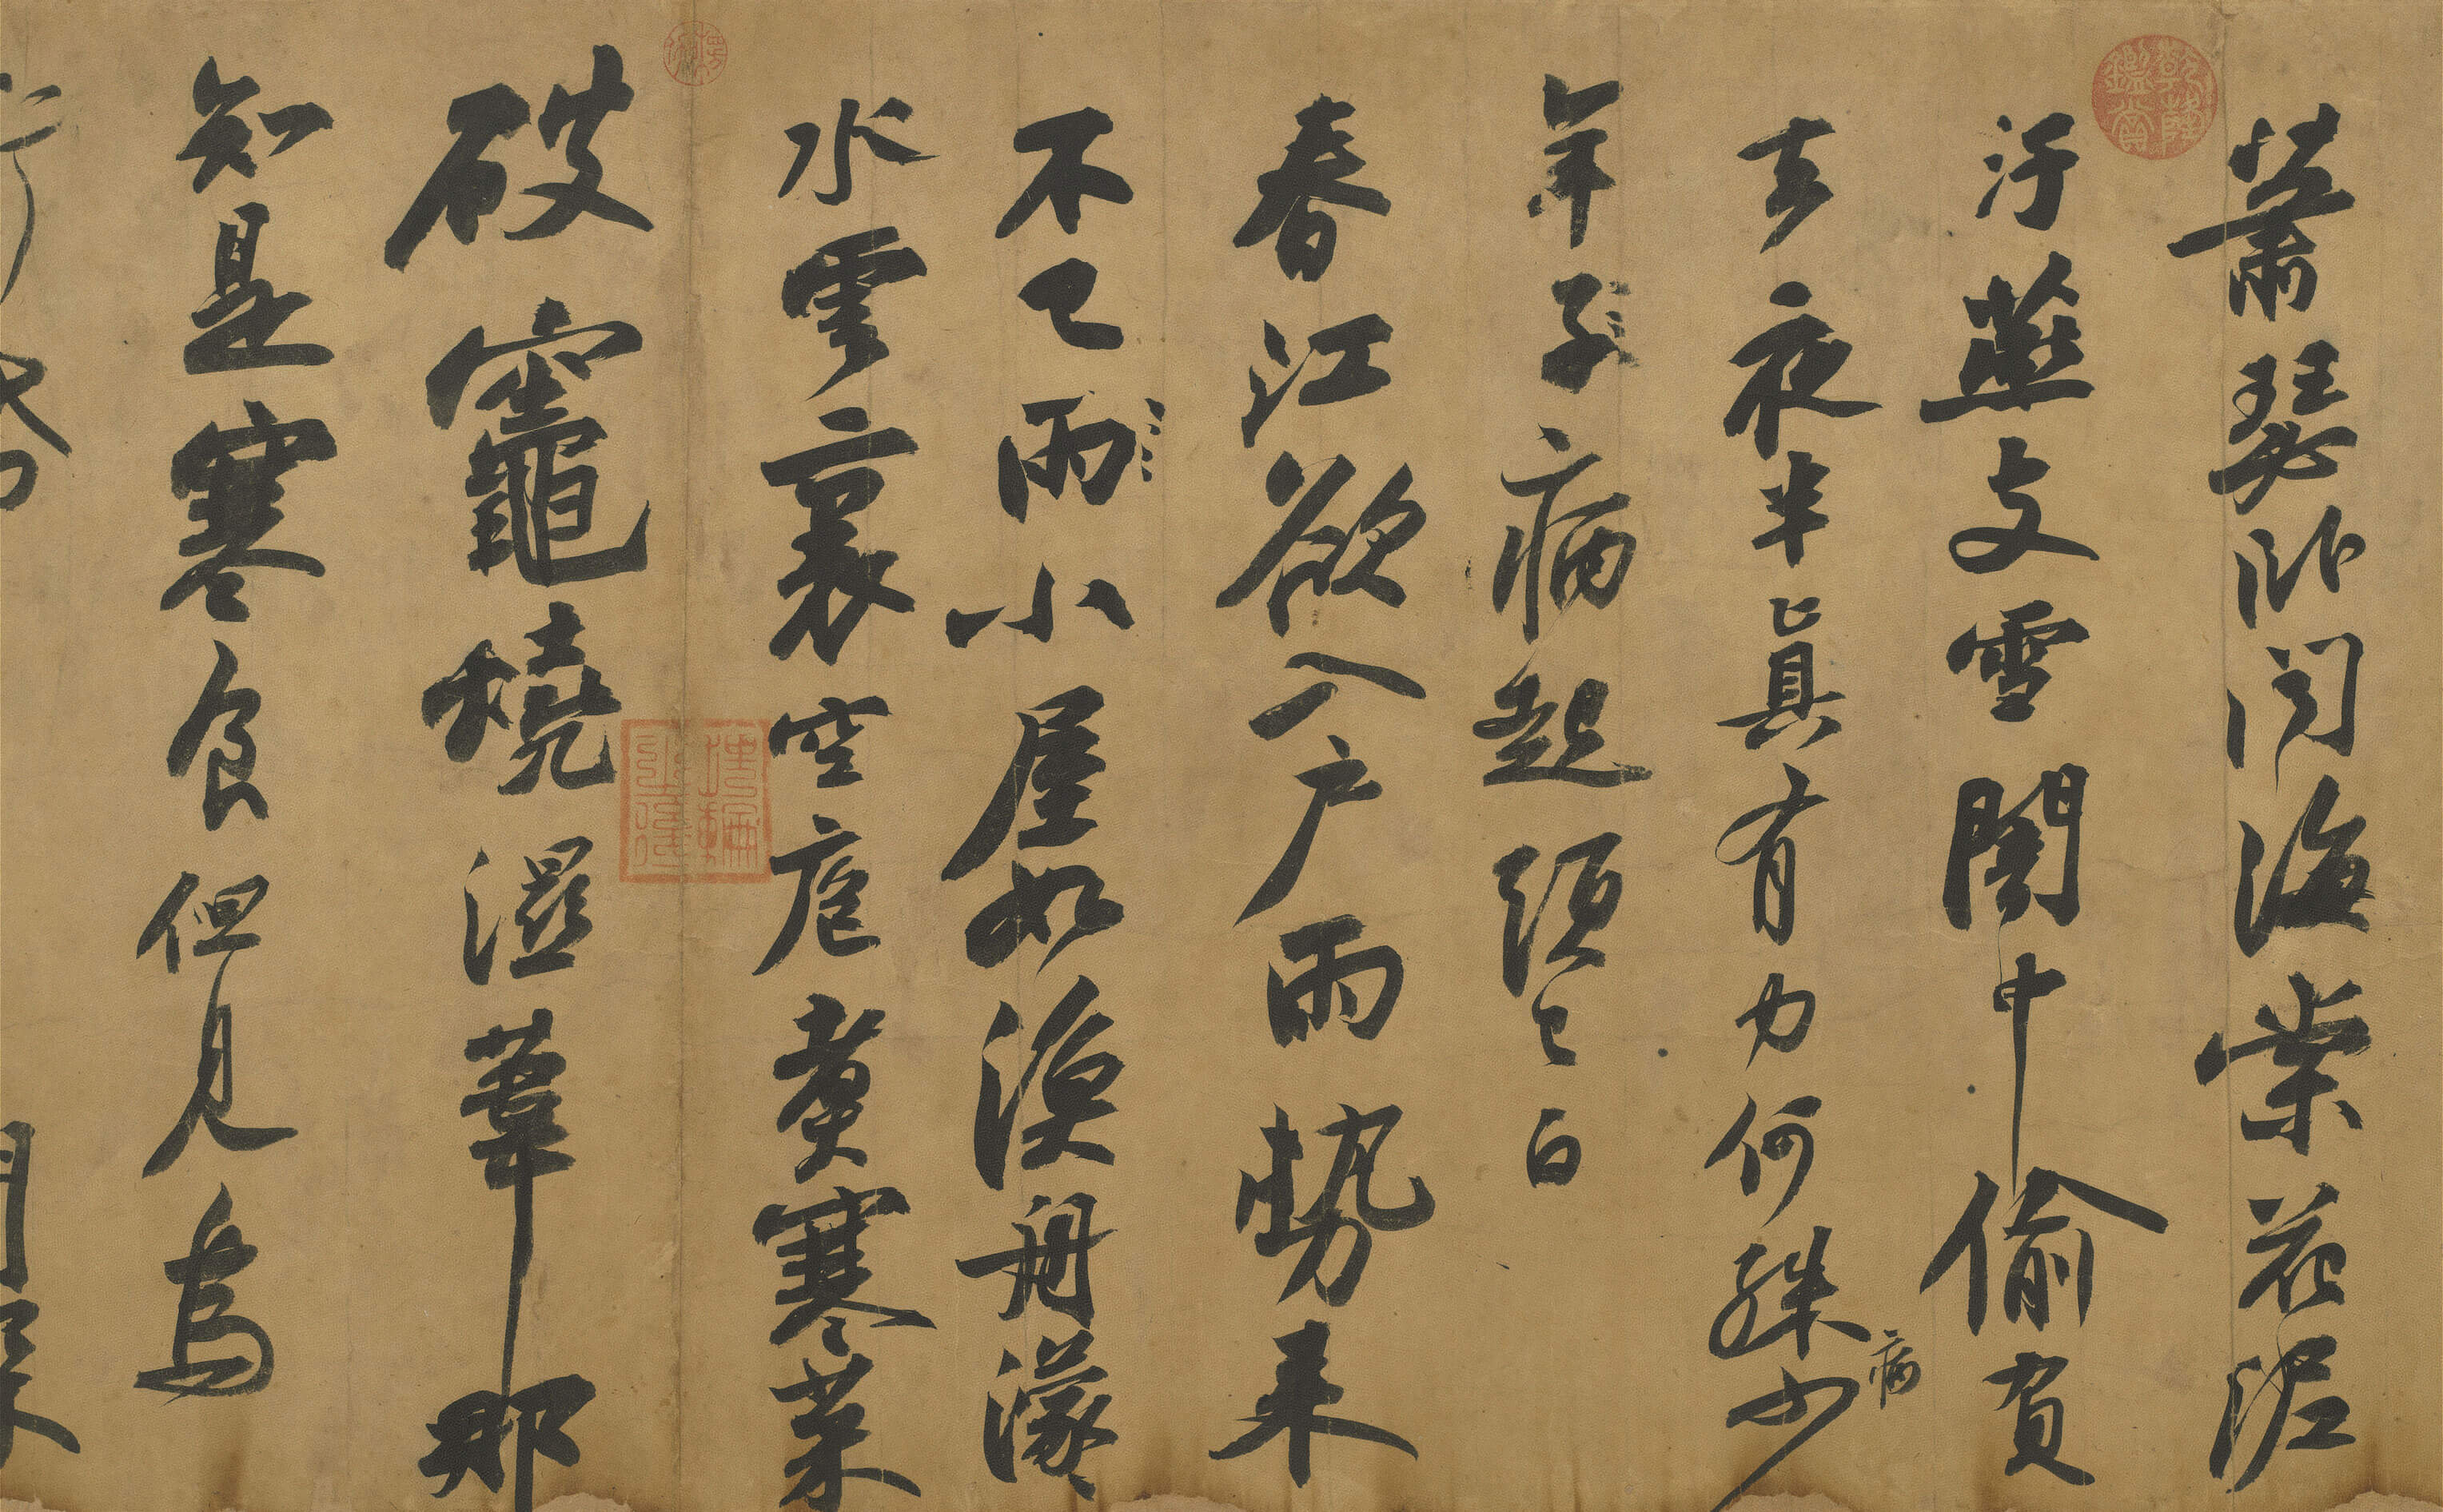 蕭瑟卧聞海棠花泥
乾隆鑑賞
汙燕支雪闇中偷負
去夜半真有力何殊少
病
年子病起頭已白
春江欲入户雨勢来
不已雨小屋如漁舟濛〻
水雲裏空庖煮寒菜
埋輪之後
破竈燒濕葦那
知是寒食但見烏